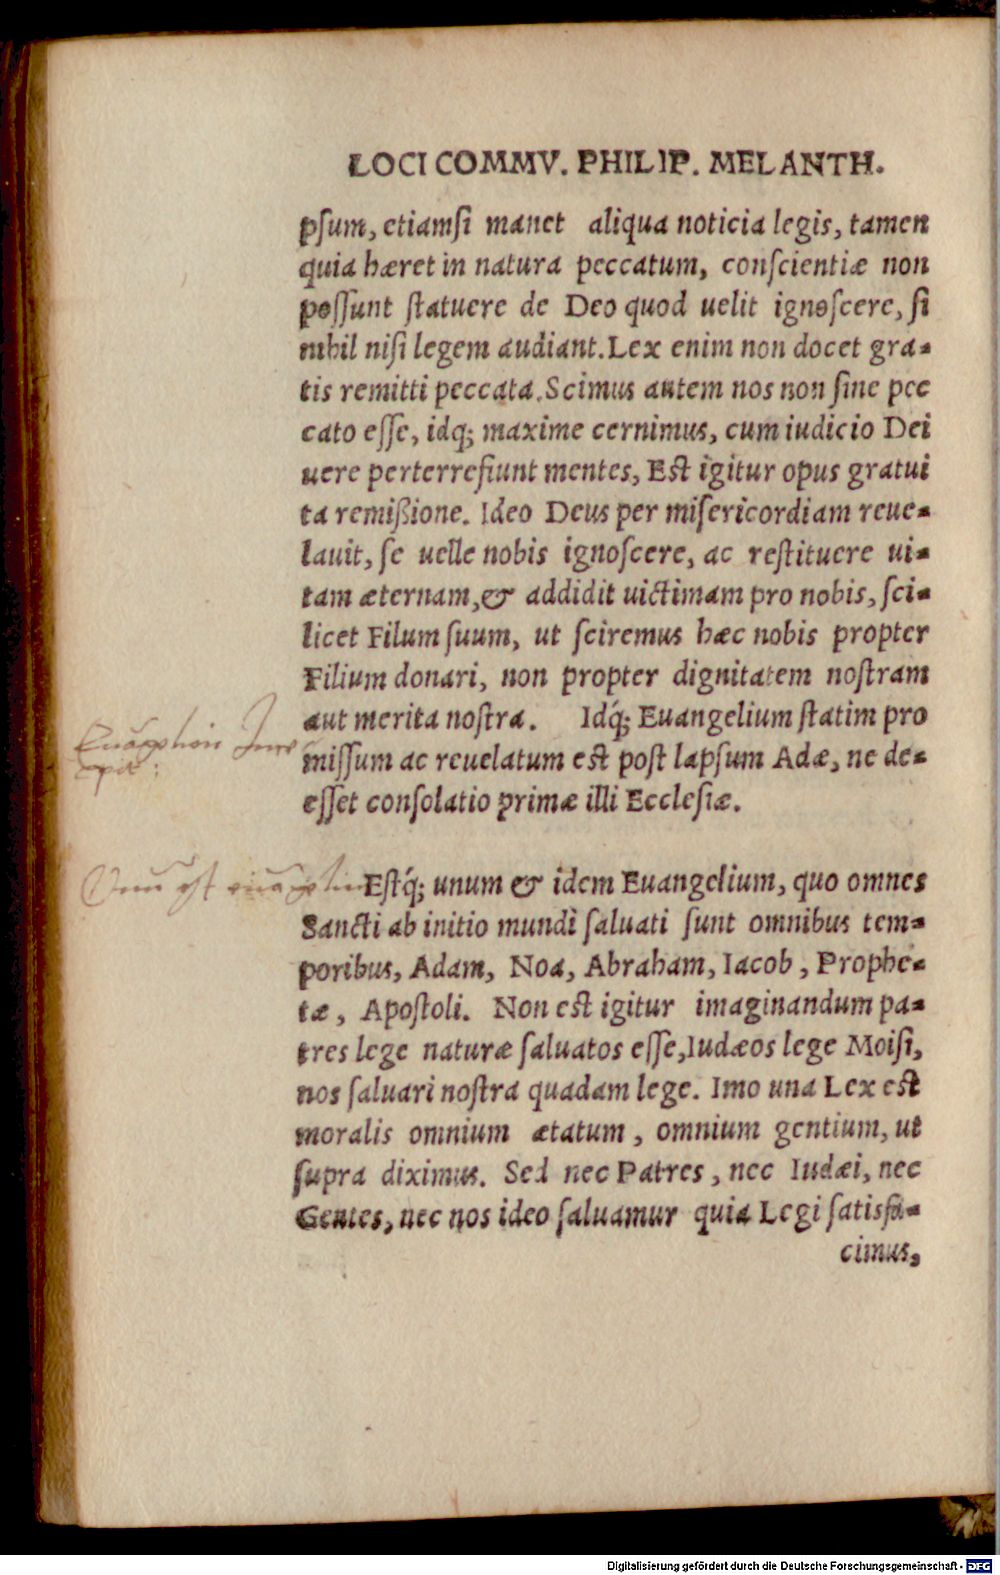 LOCI COMMV. PHILIP. MELANTH.
psum, etiamsi manet aliqua noticia legis, tamen
quia hæret in natura peccatum, conscientiæ non
possunt statuere de Deo quod uelit ignoscere, si
nihil nisi legem audiant. Lex enim non docet gra-
tis remitti peccata. Scimus autem nos non sine pec
cato esse, idq; maxime cernimus, cum iudicio Dei
uere perterrefiunt mentes, Est igitur opus gratui
ta remißione. Ideo Deus per misericordiam reue-
lauit, se uelle nobis ignoscere, ac restituere ui-
tam æternam, & addidit uictimam pro nobis, sci-
licet Filum suum, ut sciremus hæc nobis propter
Filium donari, non propter dignitatem nostram
aut merita nostra. Idq́; Euangelium statim pro
missum ac reuelatum est post lapsum Adæ, ne de-
esset consolatio primæ illi Ecclesiæ.
Estq́; unum & idem Euangelium, quo omnes
Sancti ab initio mundi saluati sunt omnibus tem-
poribus, Adam, Noa, Abraham, Iacob, Prophe-
tæ, Apostoli. Non est igitur imaginandum pa-
tres lege naturæ saluatos esse, Iudæos lege Moisi,
nos saluari nostra quadam lege. Imo una Lex est
moralis omnium ætatum, omnium gentium, ut
supra diximus. Sed nec Patres, nec Iudæi, nec
Gentes, nec nos ideo saluamur quia Legi satisfa-
cimus,
Digitalisierung gefördert durch die Deutsche Forschungsgemeinschaft - DFG